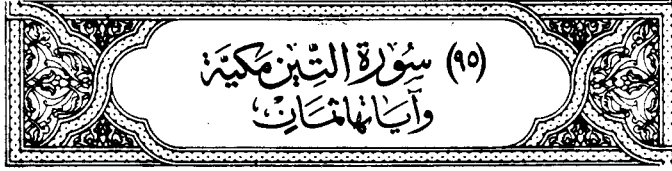 (٩٥) سُورَةُ التِّينِ مَكيَّة
وَآيَاتُهَا ثَمَانِ